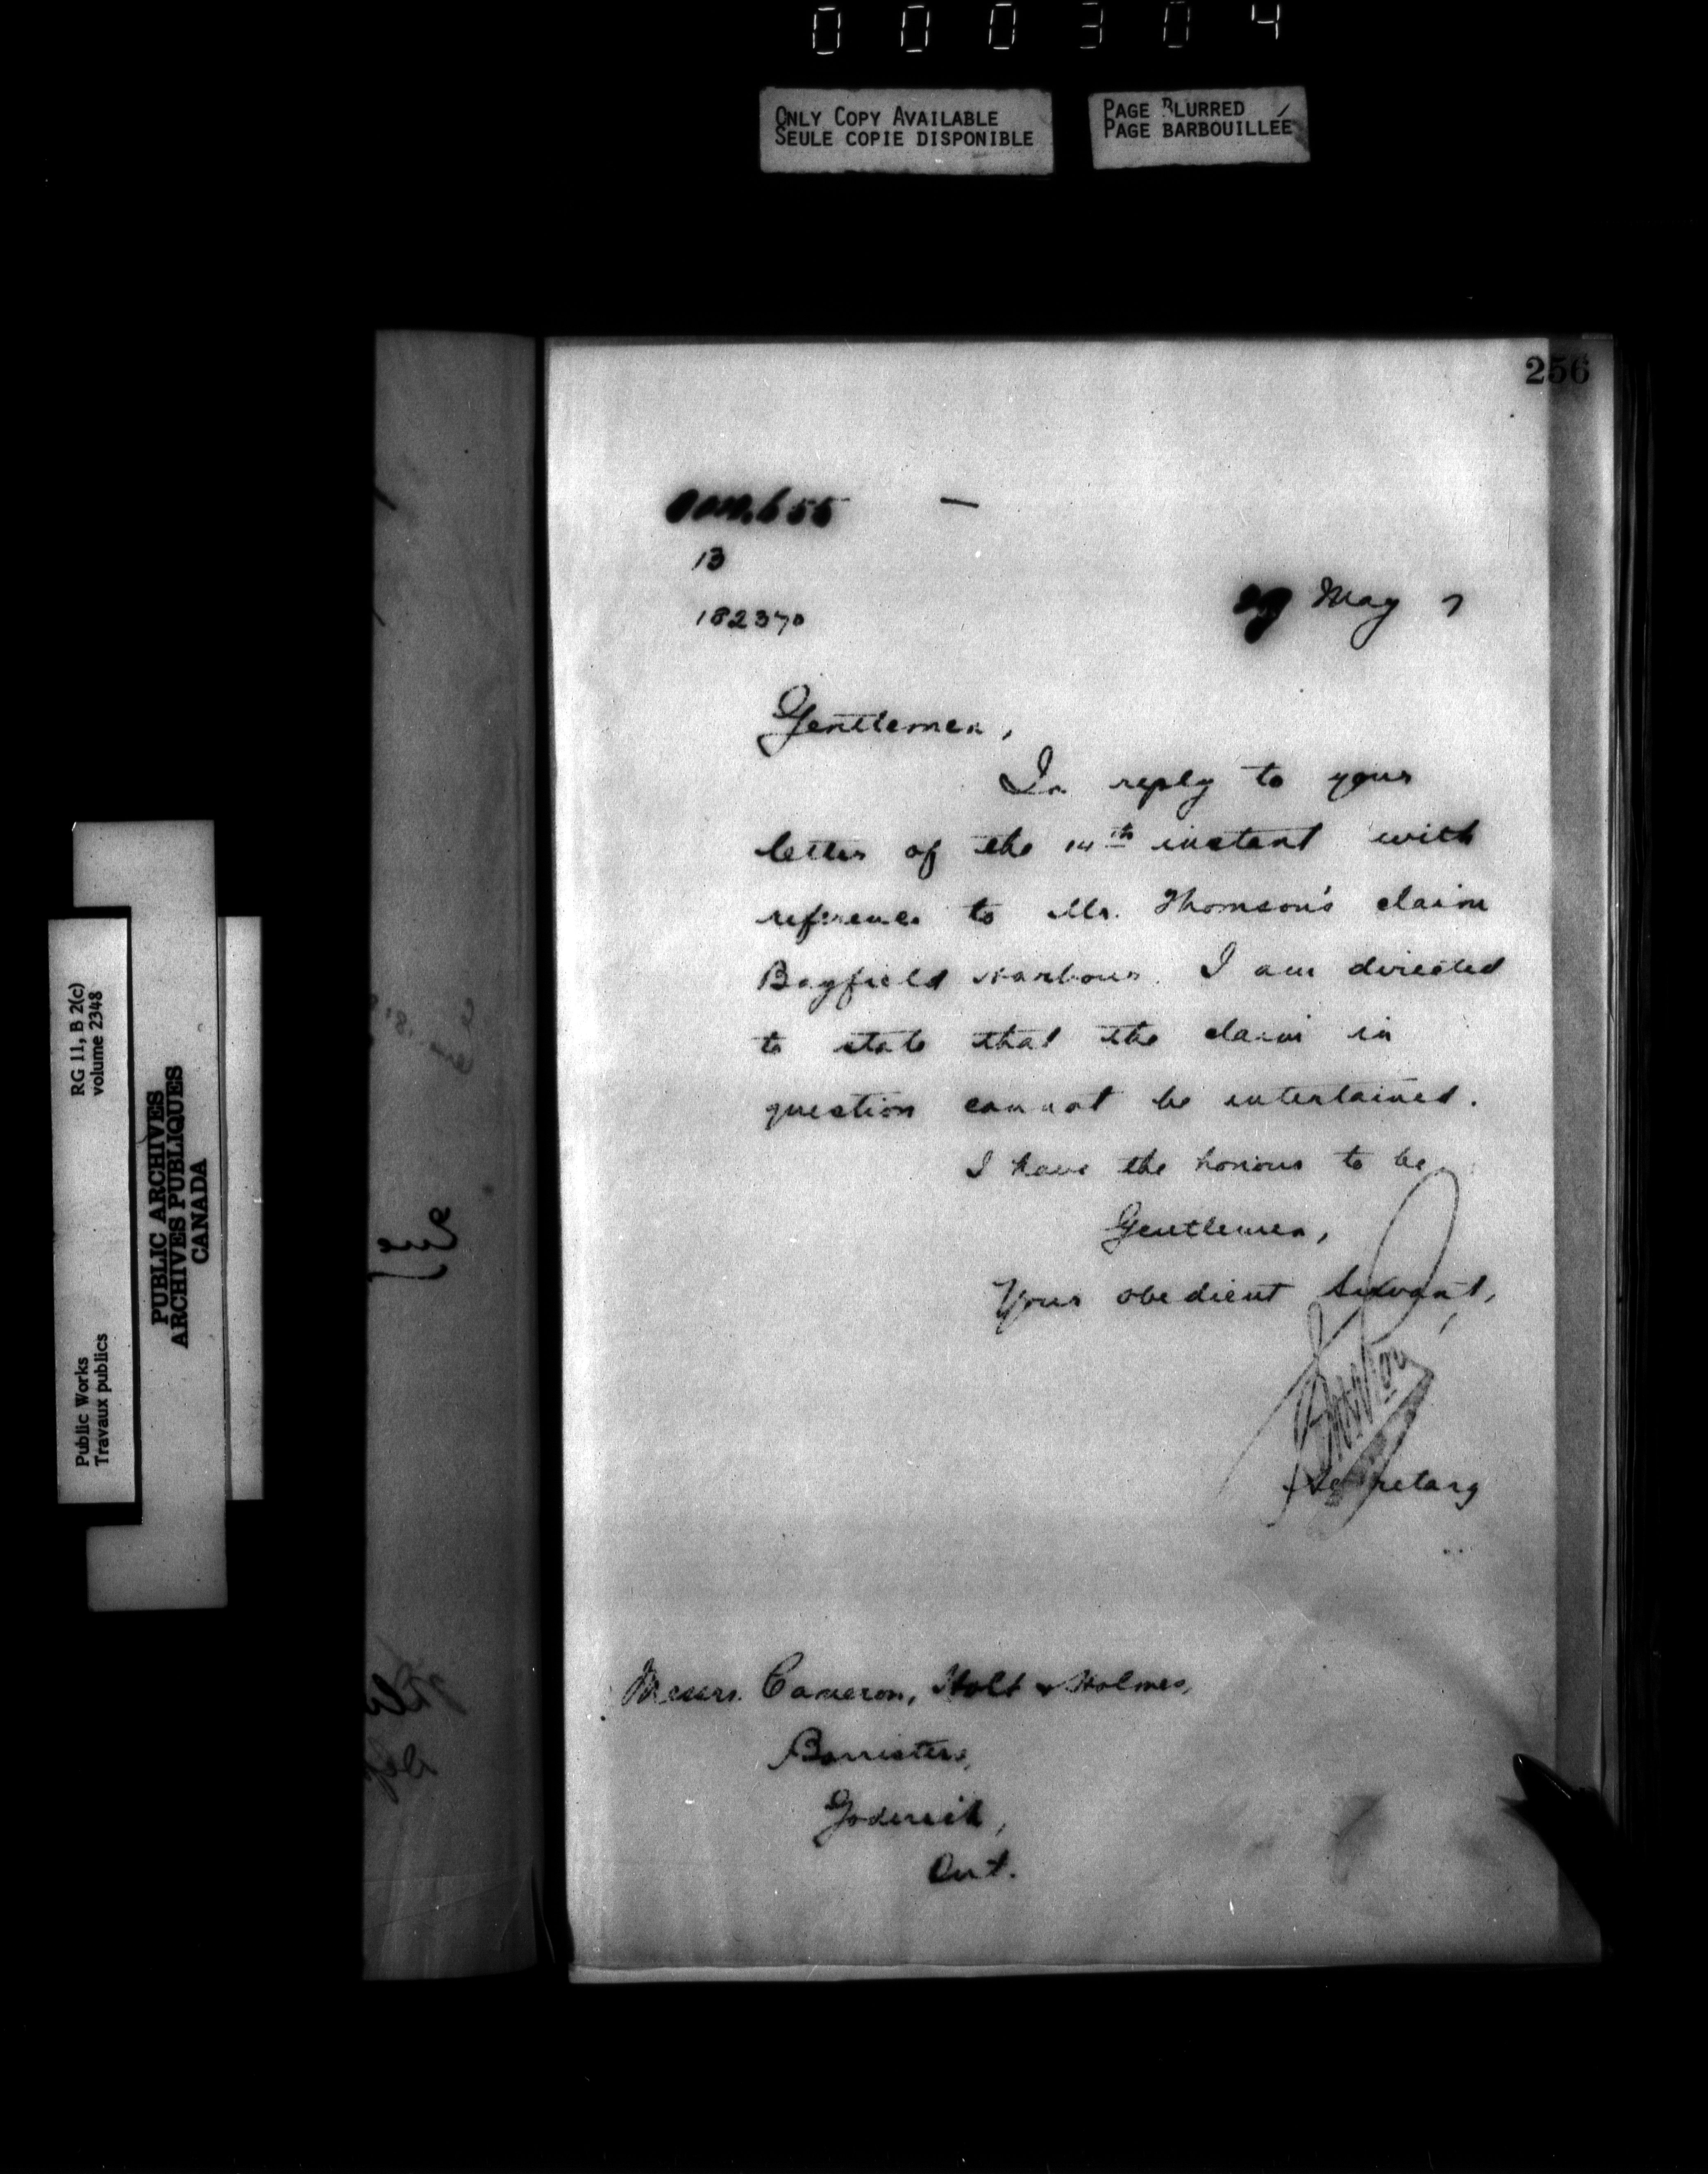 000304
ONLY COPY AVAILABLE
SEULE COPIE DISPONIBLE
PAGE BLURRED
PAGE BARBOUILLÉE
256
13
182370
May 7
Gentlemen,
In reply to your
letter of the 14th instant with
reference to Mr. Thomson's claim
Bayfield Harbour. I am directed
to state that the claim in
question cannot be entertained.
I have the honour to be
Gentlemen,
Your obedient Servant,
Secretary
Messrs. Cameron, Holt & Holmes,
Barristers,
Goderich,
Ont.
RG 11, B 2(c)
volume 2348
Public Works
Travaux publics
PUBLIC ARCHIVES
ARCHIVES PUBLIQUES
CANADA